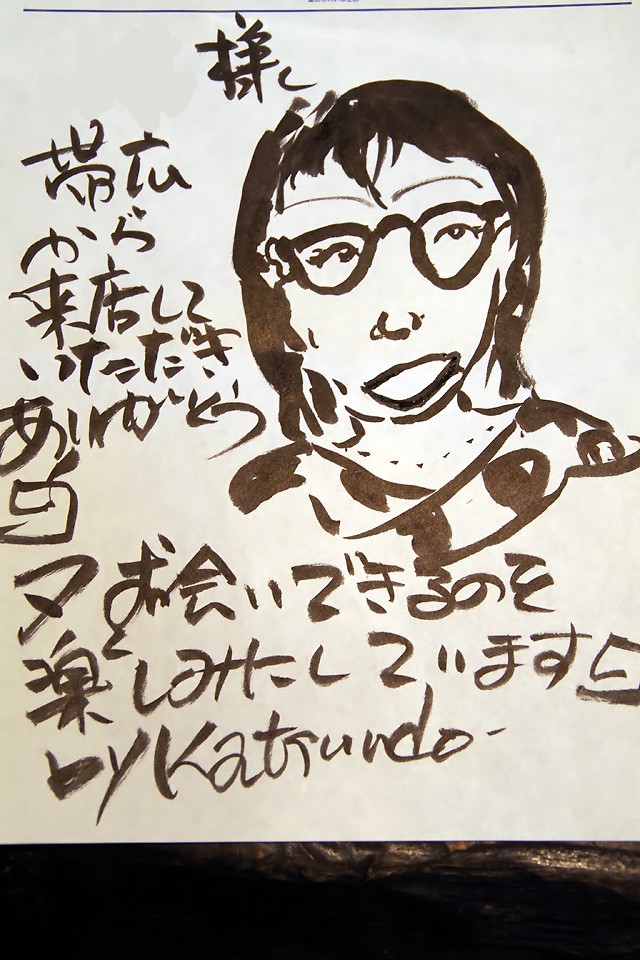 様
帯広
から
来店して
いただき
ありがとう
マタお会いできるのを
楽しみにしています
by Katsundo